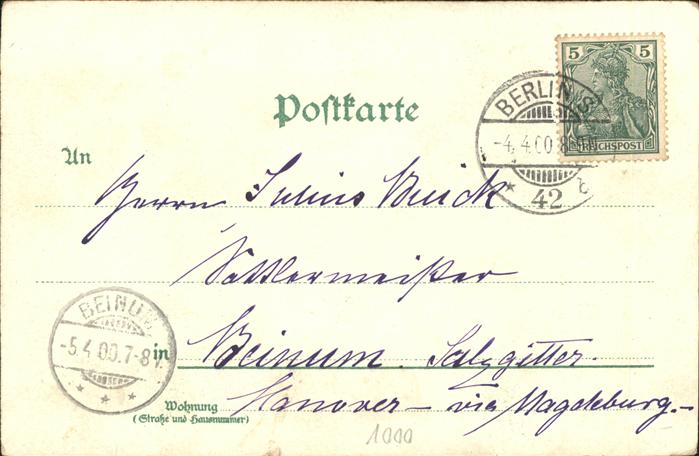 5 5
REICHSPOST
BERLIN S.
-4.4.00.8
42
Postkarte
An
Herrn Julius Buick
Sattlermeister
in Beinum. Salzgitter.
Hanover – via Magdeburg. –
Wohnung
(Straße und Hausnummer)
BEINUM
-5.4.00.7-8V.
1000